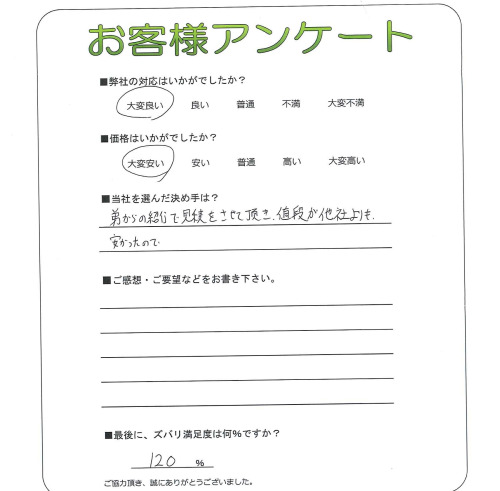 お客様アンケート
■弊社の対応はいかがでしたか？
大変良い 良い 普通 不満 大変不満
■価格はいかがでしたか？
大変安い 安い 普通 高い 大変高い
■当社を選んだ決め手は？
弟からの紹介で見積をさせて頂き、値段が他社よりも、
安かったので
■ご感想・ご要望などをお書き下さい。
■最後に、ズバリ満足度は何％ですか？
120 ％
ご協力頂き、誠にありがとうございました。